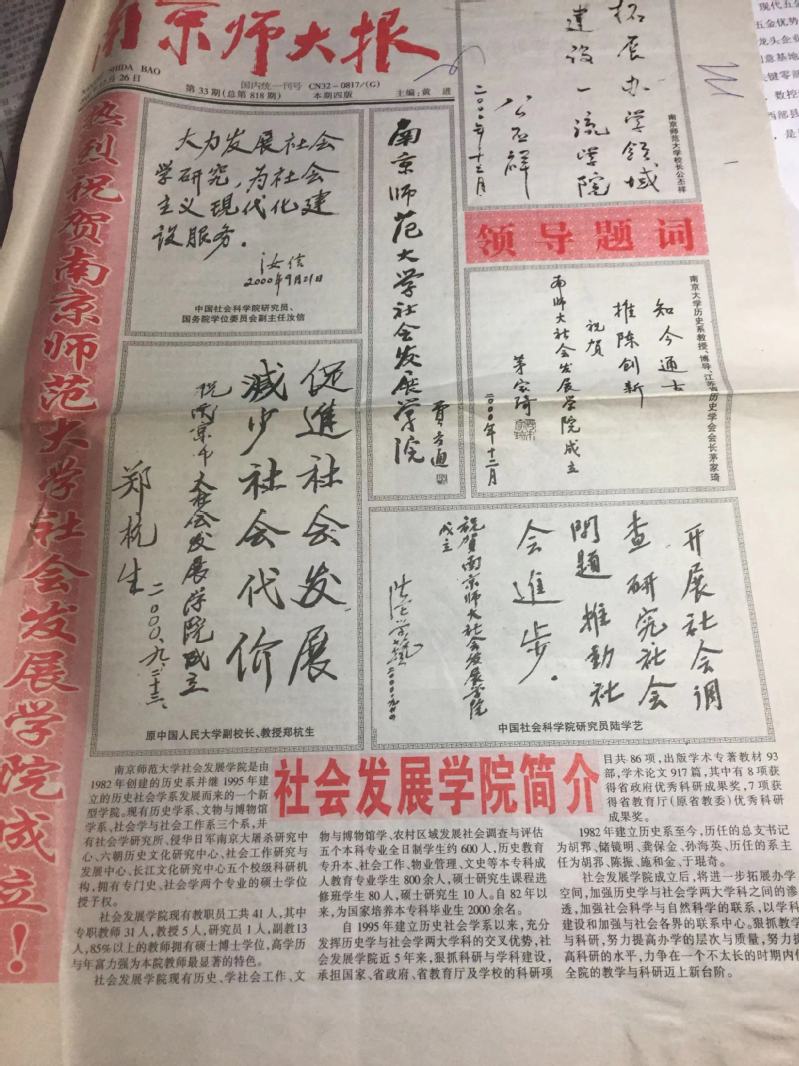 南京师大报
SHIDA BAO
月26日
国内统一刊号 CN32-0817/(G)
第33期(总第818期) 本期四版 主编:黄 进
热烈祝贺南京师范大学社会发展学院成立!
大力发展社会
学研究,为社会
主义现代化建
设服务。
汝信
2000年9月21日
中国社会科学院研究员、
国务院学位委员会副主任汝信
南京师范大学社会发展学院
贾春通
拓展办学领域
建设一流学院
公丕祥
二〇〇〇年十二月
南京师范大学校长公丕祥
领导题词
知今通古
推陈创新
祝贺
南师大社会发展学院成立
茅家琦
二〇〇〇年十二月
南京大学历史系教授、博导、江苏省历史学会会长茅家琦
促進社会发展
减少社会代价
祝南京师大社会发展学院成立
郑杭生
二〇〇〇、九、二十三、
原中国人民大学副校长、教授郑杭生
开展社会调
查研究社会
問題推動社
会進步。
祝贺南京师大社会发展学院
成立
陆学艺
中国社会科学院研究员陆学艺
社会发展学院简介
南京师范大学社会发展学院是由
1982年创建的历史系并继1995年建
立的历史社会学系发展而来的一个新
型学院。现有历史学系、文物与博物馆
学系、社会学与社会工作系三个系,并
有社会学研究所、侵华日军南京大屠杀研究中
心、六朝历史文化研究中心、社会工作研究与
发展中心、长江文化研究中心五个校级科研机
构,拥有专门史、社会学两个专业的硕士学位
授予权。
社会发展学院现有教职员工共41人,其中
专职教师31人,教授5人,研究员1人,副教13
人,85%以上的教师拥有硕士博士学位,高学历
与年富力强为本院教师最显著的特色。
社会发展学院现有历史、学社会工作、文
物与博物馆学、农村区域发展社会调查与评估
五个本科专业全日制学生约600人,历史教育
专升本、社会工作、物业管理、文史等本专科成
人教育专业学生800余人,硕士研究生课程进
修班学生80人,硕士研究生10人。自82年以
来,为国家培养本专科毕业生2000余名。
自1995年建立历史社会学系以来,充分
发挥历史学与社会学两大学科的交叉优势,社
会发展学院近5年来,狠抓科研与学科建设,
承担国家、省政府、省教育厅及学校的科研项
目共86项,出版学术专著教材93
部,学术论文917篇,其中有8项获
得省政府优秀科研成果奖,7项获
得省教育厅(原省教委)优秀科研
成果奖。
1982年建立历史系至今,历任的总支书记
为胡邦、储铖明、龚保金、孙海英、历任的系主
任为胡邦、陈振、施和金、于琨奇。
社会发展学院成立后,将进一步拓展办学
空间,加强历史学与社会学两大学科之间的渗
透,加强社会科学与自然科学的联系,以学科
建设和加强与社会各界的联系中心。狠抓教学
与科研,努力提高办学的层次与质量,努力提
高科研的水平,力争在一个不太长的时期内使
全院的教学与科研迈上新台阶。
现代五金
五金优势
龙头企业
意基地
键零部
数控
西部县
是